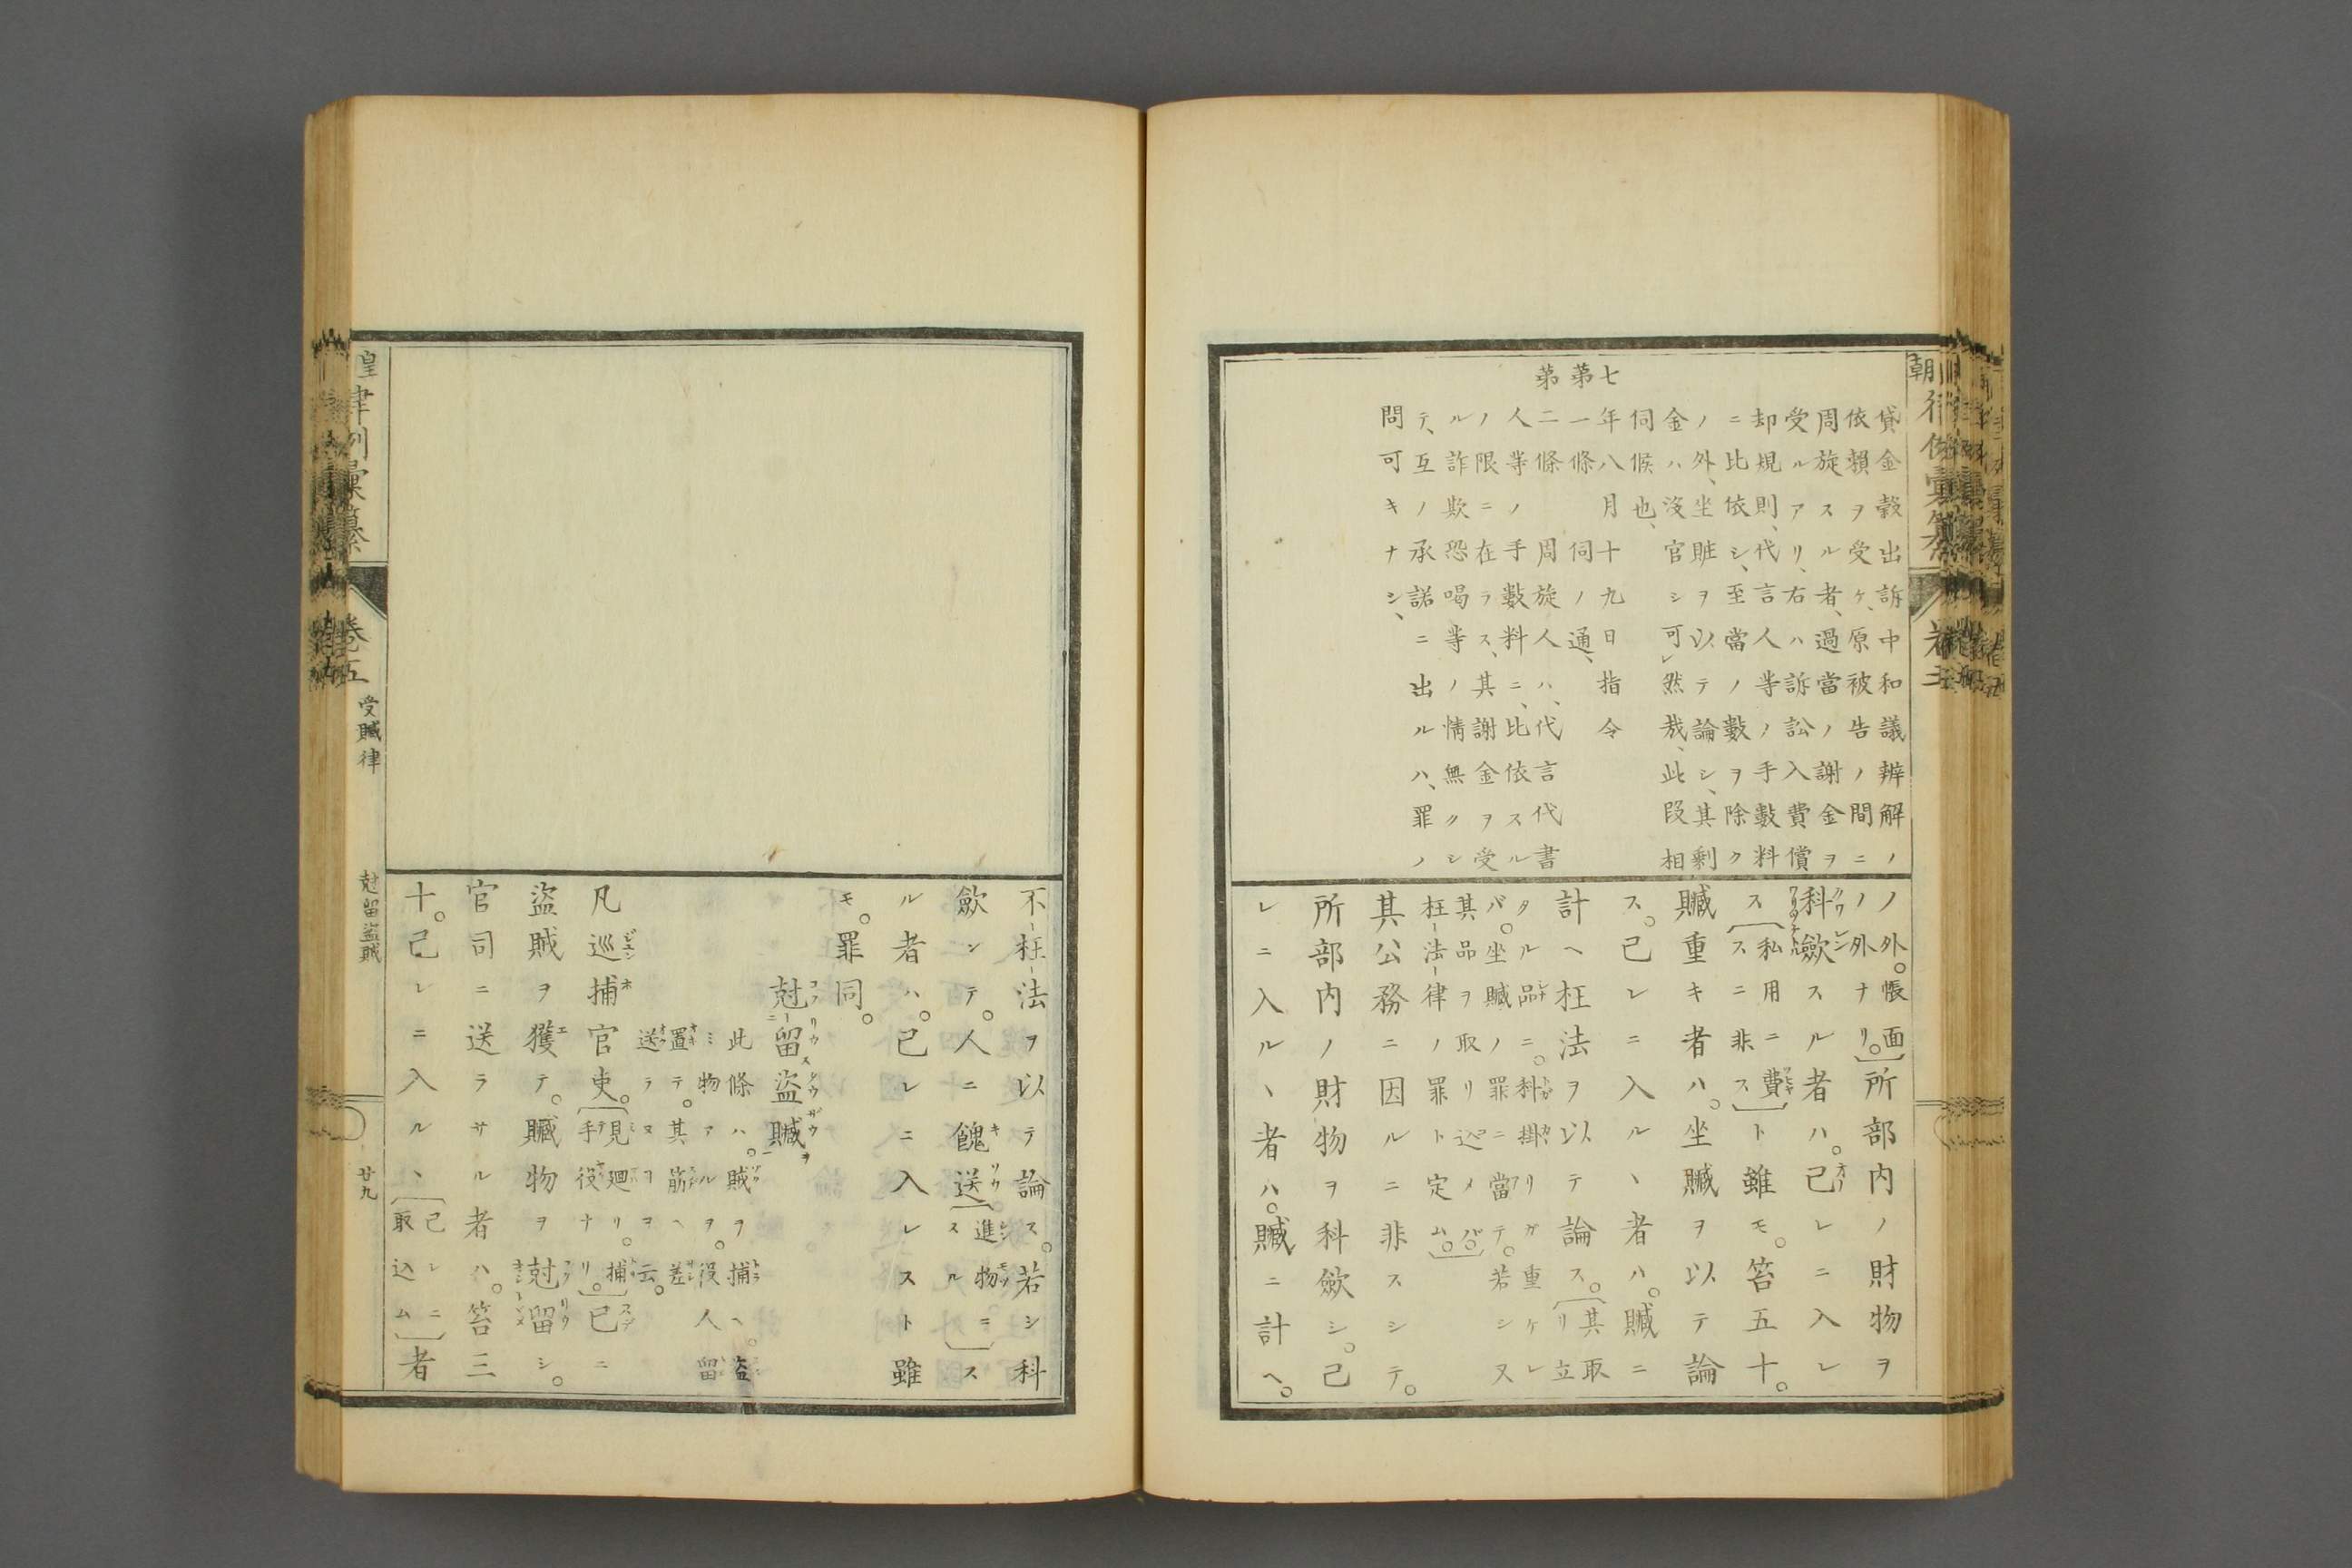 貸金穀出訴中和議辨解ノ
依賴ヲ受ケ、原被告ノ間ニ
周旋スル者、過當ノ謝金ヲ
受ルアリ、右ハ訴訟入費償
却規則、代言人等ノ手數料
ニ比依シ、至當ノ數ヲ除ク
ノ外、坐賍ヲ以テ論シ、其剩
金ハ沒官シ可レ然哉、此段相
伺候也、
七年八月十九日指令
第一條 伺ノ通、
第二條 周旋人ハ、代言代書
人等ノ手數料ニ、比依スル
ノ限ニ在ラス、其謝金ヲ受
ルノ詐欺恐喝等ノ情無クシ
テ、互ノ承諾ニ出ルハ、罪ノ
問可キナシ、
ノ外。帳面
ノ外ナリ。所部内ノ財物ヲ
科歛スル者ハ。己レニ入レ
ス私用ニ費
スニ非スト雖モ。笞五十。
贓重キ者ハ。坐贓ヲ以テ論
ス。己レニ入ルヽ者ハ。贓ニ
計ヘ枉法ヲ以テ論ス。其取
リ立
タル品ニ。科掛リガ重ケレ
バ。坐贓ノ罪ニ當テ。若シヌ
其品ヲ取リ込メバ。
枉法律ノ罪ト定ム。
其公務ニ因ルニ非スシテ。
所部內ノ財物ヲ科歛シ。己
レニ入ルヽ者ハ。贓ニ計ヘ。
不枉法ヲ以テ論ス。若シ科
歛シテ。人ニ餽送進物ニ
スルス
ル者ハ。己レニ入レスト雖
モ。罪同。
尅留盜贓
此條ハ。賊ヲ捕ヘ。盜
ミ物アルヲ。役人留
置テ。其筋ヘ差
送ラヌヲ云。
凡巡捕官吏。見廻リ。捕
手役ナリ。已ニ
盜賊ヲ獲テ。贓物ヲ尅留シ。
官司ニ送ラサル者ハ。笞三
十。己レニ入ルヽ己レニ
取込ム者
皇
律例彙纂
卷五
受贓律
尅留盜贓
廿九